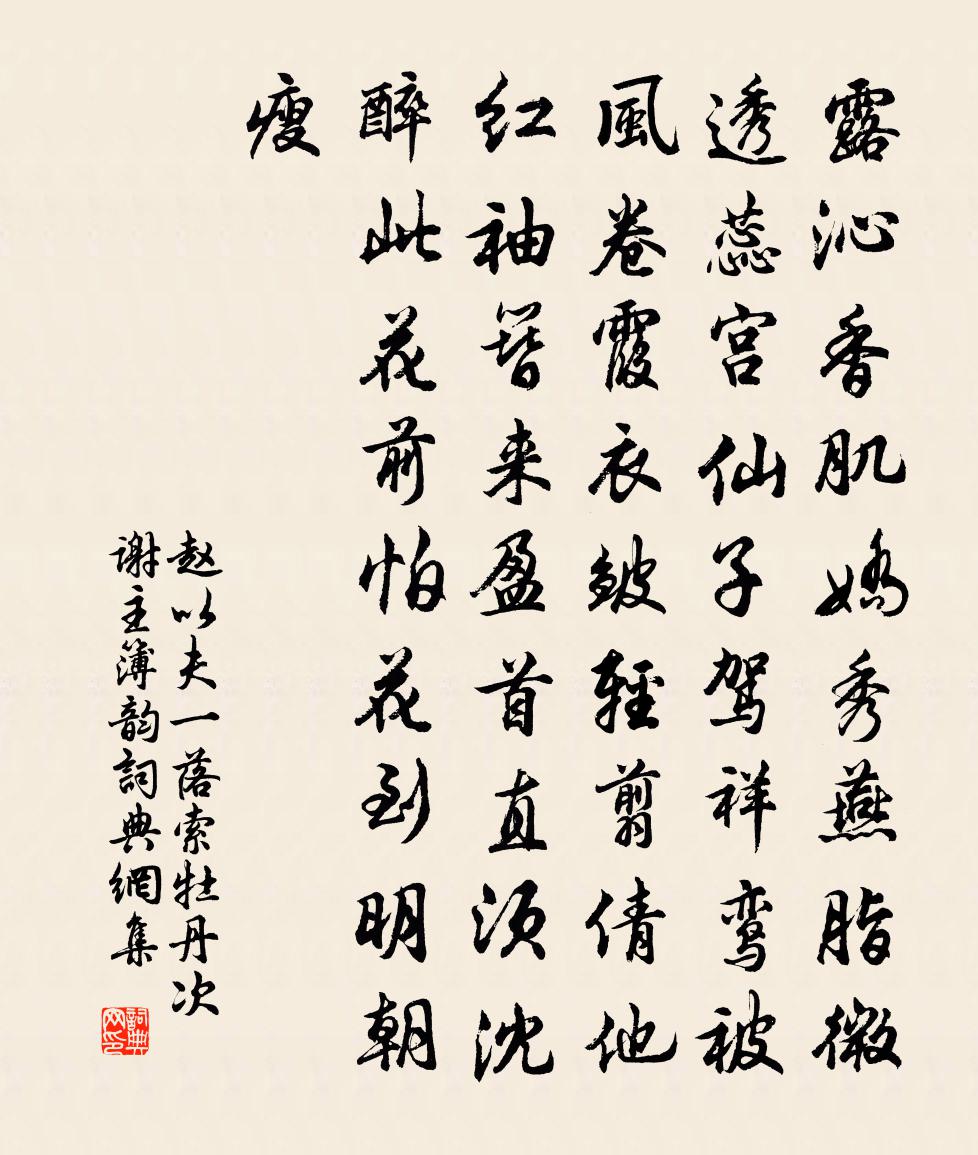 露沁香肌嬌秀燕脂微
透蕊宫仙子駕祥鸾被
風卷霞衣皱輕剪倩他
红袖簪来盈首直须沈
醉此花前怕花到明朝
瘦
赵以夫一落索牡丹次
谢主簿韵詞典網集
詞典网印